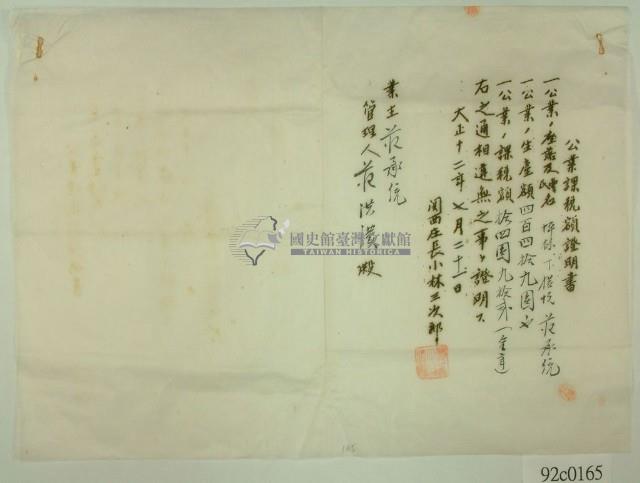 公業課稅額證明書
一公業ノ座落及 名 坪林下 范承统
一公業ノ生產額四百四拾九圓也
一公業ノ課稅額拾四圓九拾
右之通相違無之事ヲ證明ス
大正十二年七月二十一日
関西庄長小林三次郎
業主 范承统
管理人 范洪 殿
國史館臺灣文獻館
TAIWAN HISTORICA
92c0165